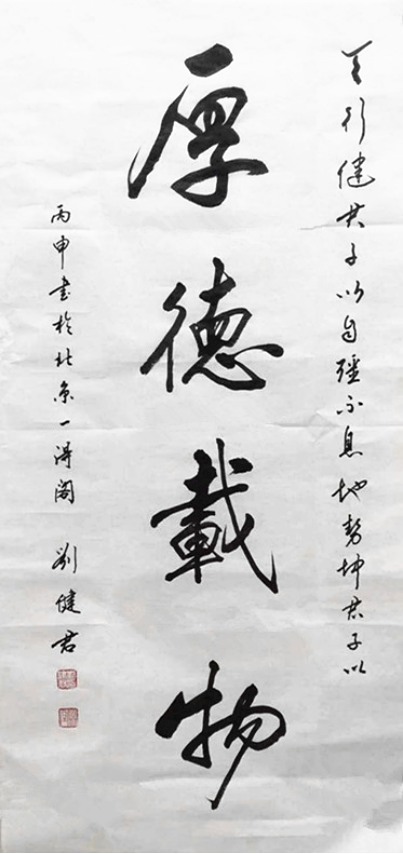 天行健君子以自强不息地势坤君子以
厚德載物
丙申书於北京一得阁 刘健君